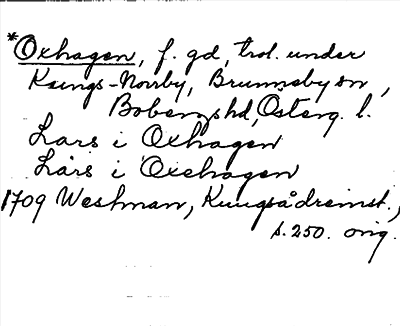 *Oxhagen, f. gd, trol. under
Kungs-Norrby, Brunneby sn,
Bobergs hd, Österg. l.
Lars i Oxhagen
Lars i Oxehagen
1709 Westman, Kungsådreinst.,
s. 250. orig.